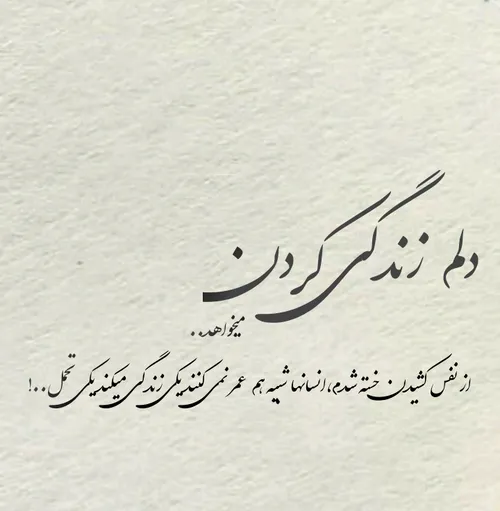 دلم زندگی کردن
میخواهد..
از نفس کشیدن خسته شدم، انسانها شبیه هم عمر نمی کنند یکی زندگی میکند یکی تحمل..!